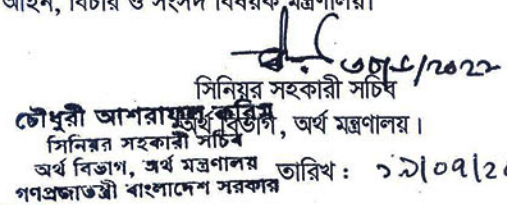 আইন, বিচার ও সংসদ বিষয়ক মন্ত্রণালয়।
৩০/৮/২০২২
সিনিয়র সহকারী সচিব
অর্থ বিভাগ, অর্থ মন্ত্রণালয়।
চৌধুরী আশরাফুল করিম
সিনিয়র সহকারী সচিব
অর্থ বিভাগ, অর্থ মন্ত্রণালয়
গণপ্রজাতন্ত্রী বাংলাদেশ সরকার
তারিখ :